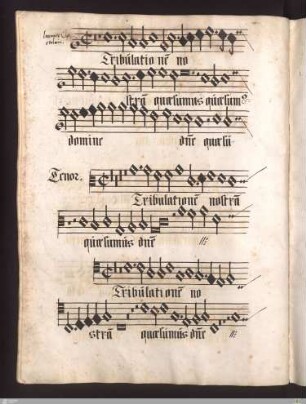 Tribulatione no
strā quæsumus quæsum⁹
domine dn̄e quæsu
Tenor.
Tribulationē nostrā
quæsumus dn̄e
Tribulationē no
strā quæsumus dn̄e